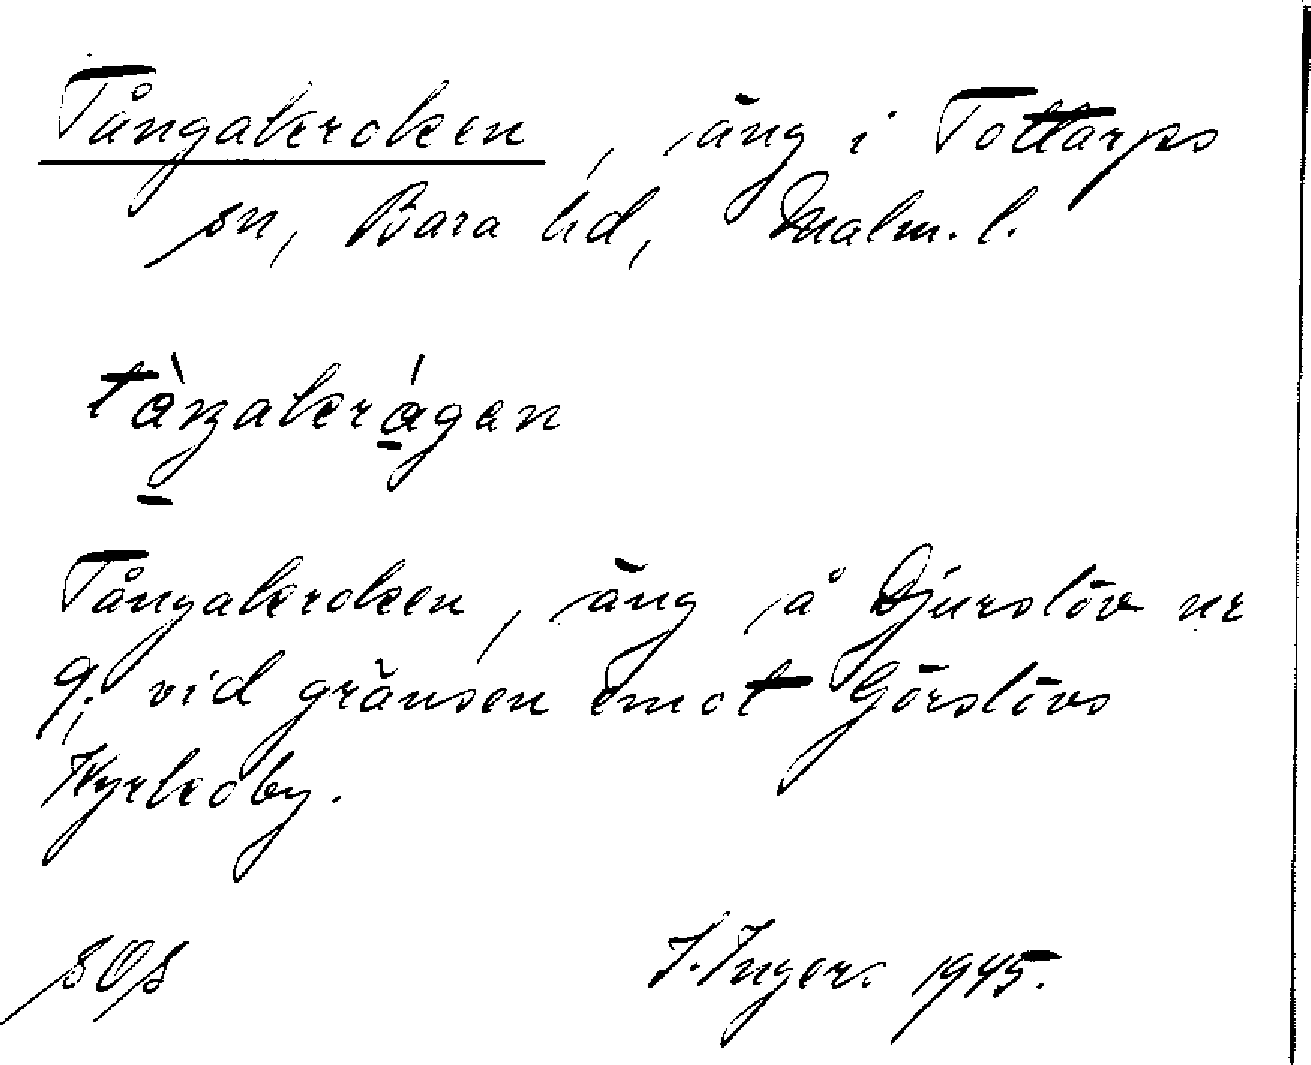 Tångakroken, äng i Tottarps
sn, Bara hd, Malm. l.
tàŋakrágen
Tångakroken, äng å Djurslöv nr
9; vid gränsen emot Görslövs
Kyrkoby.
sOs I. Ingers 1945.